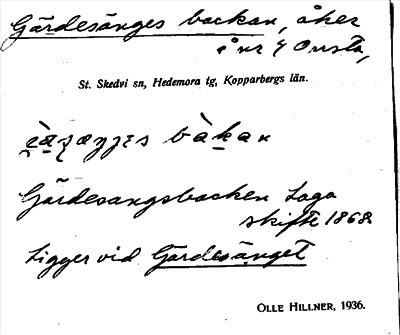 Gärdesänges backan, åker
i nr 4 Onsta,
St. Skedvi sn, Hedemora tg, Kopparbergs län.
bàkan
Gärdesangsbacken Laga
skifte 1868
Ligger vid Gärdesänget
OLLE HILLNER, 1936.